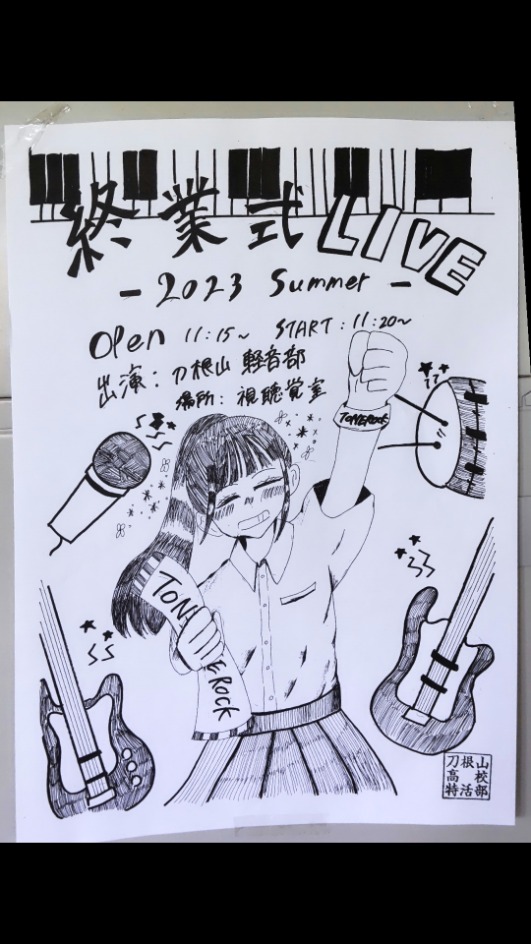 終業式 LIVE
- 2023 Summer -
OPen 11:15~ START:11:20~
出演: 刀根山 軽音部
場所: 視聴覚室
TONEROCK
TONEROCK
刀根山
高 校
特活部